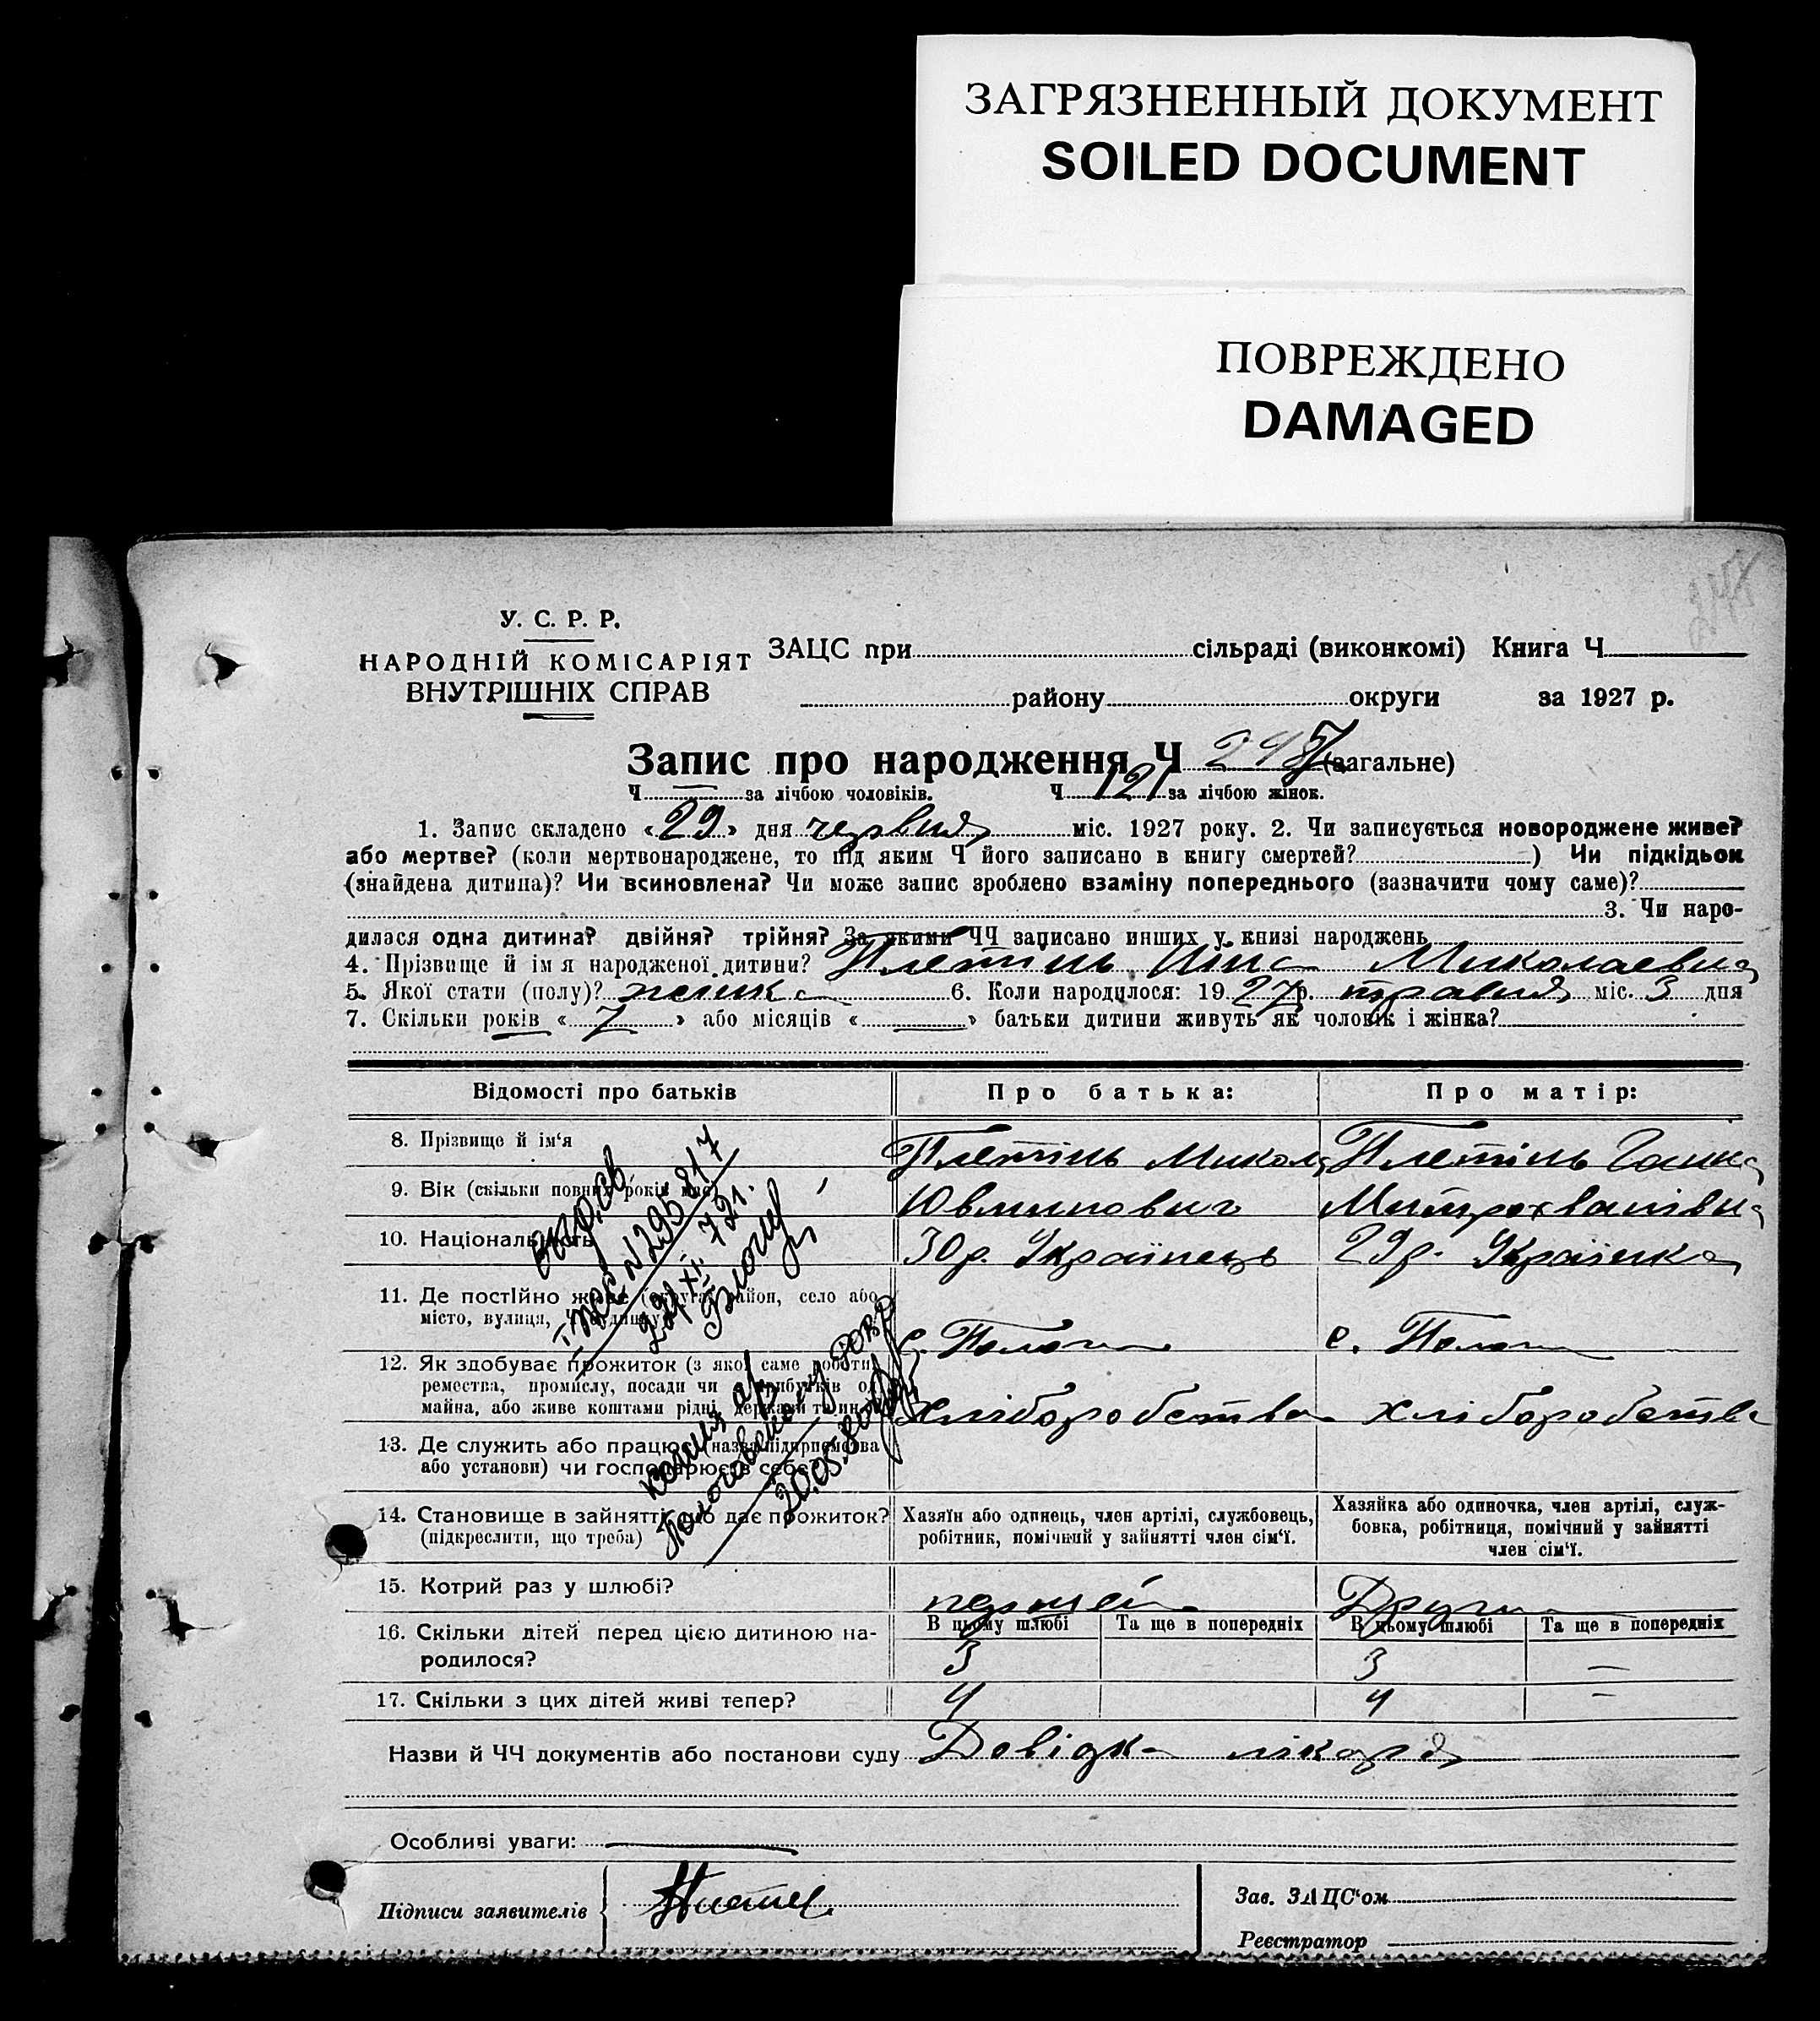 ЗАГРЯЗНЕННЫЙ ДОКУМЕНТ
SOILED DOCUMENT
ПОВРЕЖДЕНО
DAMAGED
У. С. Р. Р.
НАРОДНІЙ КОМІСАРІЯТ
ВНУТРІШНІХ СПРАВ
ЗАЦС при сільраді (виконкомі) Книга Ч
району округи за 1927 р.
Запис про народження Ч (загальне)
Ч за лічбою чоловіків. Ч 121 за лічбою жінок.
1. Запис складено «29» дня червня міс. 1927 року. 2. Чи записується новороджене живе?
або мертве? (коли мертвонароджене, то під яким Ч його записано в книгу смертей? ) Чи підкідьок
(знайдена дитина)? Чи всиновлена? Чи може запис зроблено взаміну попереднього (зазначити чому саме)?
3. Чи наро-
дилася одна дитина? двійня? трійня? За якими ЧЧ записано инших у книзі народжень
4. Прізвище й ім я народженої дитини? Плетінь Миколаевна
5. Якої стати (полу)? жінка 6. Коли народилося: 1927р. травня міс. 3 дня
7. Скільки років «7» або місяців « — » батьки дитини живуть як чоловік і жінка?
Відомості про батьків Про батька: Про матір:
8. Прізвище й ім‘я Плетінь Микола Плетінь Ганна
9. Вік (скільки повних років має) Митрохванівна
10. Національність 30р. Українець 29р. Українка
11. Де постійно живе (округа, район, село або
місто, вулиця, Ч будинку) с. Пологи с. Пологи
12. Як здобуває прожиток (з якої саме роботи,
ремества, промислу, посади чи з прибутків од
майна, або живе коштами рідні, держави та ин.) хліборобство хліборобство
13. Де служить або працює (назва підприємства
або установи) чи господарює в себе?
14. Становище в зайнятті, що дає прожиток?
(підкреслити, що треба)
Хазяїн або одинець, член артілі, службовець,
робітник, помічний у зайнятті член сім‘ї.
Хазяйка або одиночка, член артілі, служ-
бовка, робітниця, помічний у зайнятті
член сім‘ї.
15. Котрий раз у шлюбі? першей Други
16. Скільки дітей перед цією дитиною на-
родилося?
В цьому шлюбі Та ще в попередніх В цьому шлюбі Та ще в попередніх
3 3 —
17. Скільки з цих дітей живі тепер? 4 4 —
Назви й ЧЧ документів або постанови суду Довідка лікаря
Особливі уваги:
Підписи заявителів
Зав. ЗАЦС‘ом
Реєстратор